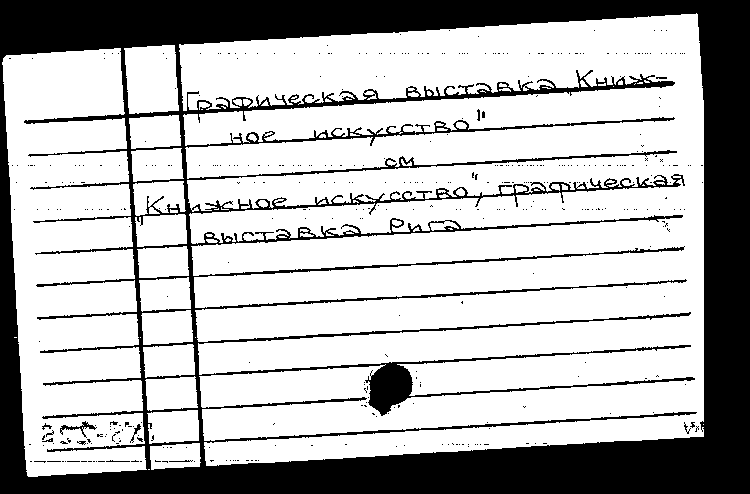 Графическая выставка „Книж-
ное искусство"
см
„Книжное искусство", графическая
выставка Рига